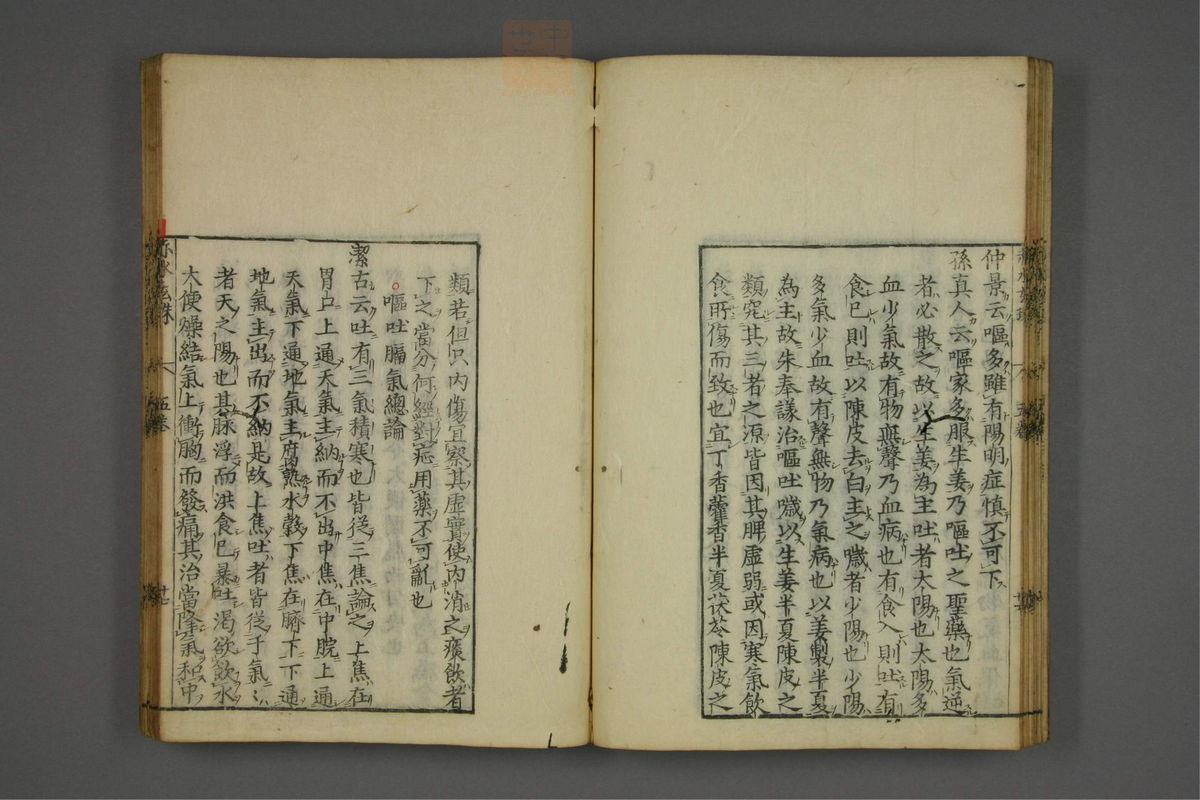 仲景云嘔多雖有陽明症慎不可下
孫真人云嘔家多服生姜乃嘔吐之聖藥也氣逆
者必散之故以生姜為主吐者太陽也太陽多
血少氣故有物無聲乃血病也有食入則吐有
食已則吐以陳皮去白主之噦者少陽也少陽
多氣少血故有聲無物乃氣病也以姜製半夏
為主故朱奉議治嘔吐噦以生姜半夏陳皮之
類究其三者之源皆因其脾虛弱或因寒氣飲
食所傷而致也宜丁香藿香半夏茯苓陳皮之
類若但只內傷宜察其虛實使內消之痰飲者
下之當分何經對症用藥不可亂也
嘔吐膈氣總論
潔古云吐有三氣積寒也皆從三焦論之上焦在
胃口上通天氣主納而不出中焦在中脘上通
天氣下通地氣主腐熟水穀下焦在臍下下通
地氣主出而不納是故上焦吐者皆從于氣〻
者天之陽也其脉浮而洪食已暴吐渴欲飲水
大便燥結氣上衝胸而發痛其治當降氣和中
五卷